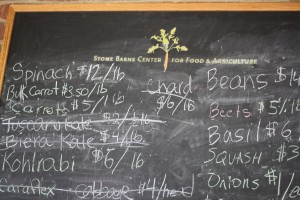 STONE BARNS CENTER FOR FOOD & AGRICULTURE
Spinach $12/lb
Bulk Carrot $3.50/lb
Carrots $5/lb
Chard $6/lb
Tuscan Kale
Biera Kale $4/lb
Kohlrabi $6/lb
Caraflex cabbage $4/head
Beans $1
Beets $5/lb
Basil $6
SQUASH $3
Onions $1/